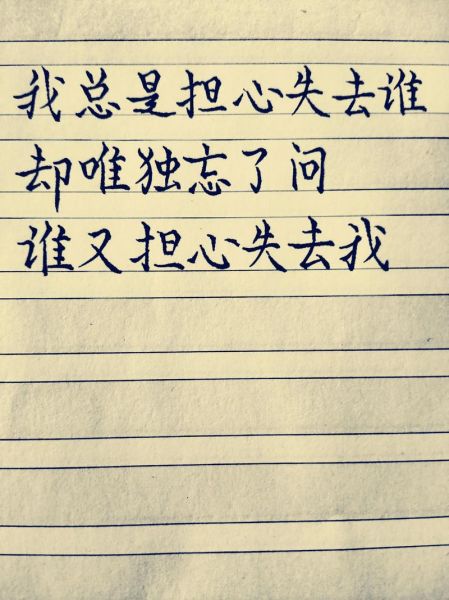 我总是担心失去谁
却唯独忘了问
谁又担心失去我